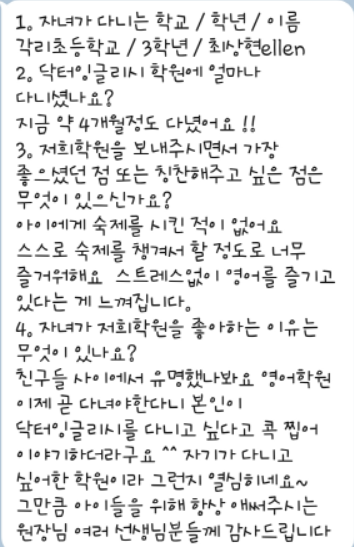 1. 자녀가 다니는 학교 / 학년 / 이름
각리초등학교 / 3학년 / 최상현ellen
2. 닥터잉글리시 학원에 얼마나
다니셨나요?
지금 약 4개월정도 다녔어요 !!
3. 저희학원을 보내주시면서 가장
좋으셨던 점 또는 칭찬해주고 싶은 점은
무엇이 있으신가요?
아이에게 숙제를 시킨 적이 없어요
스스로 숙제를 챙겨서 할 정도로 너무
즐거워해요 스트레스없이 영어를 즐기고
있다는 게 느껴집니다.
4. 자녀가 저희학원을 좋아하는 이유는
무엇이 있나요?
친구들 사이에서 유명했나봐요 영어학원
이제 곧 다녀야한다니 본인이
닥터잉글리시를 다니고 싶다고 콕 찝어
이야기하더라구요 ^^ 자기가 다니고
싶어한 학원이라 그런지 열심히네요~
그만큼 아이들을 위해 항상 애써주시는
원장님 여러 선생님분들께 감사드립니다